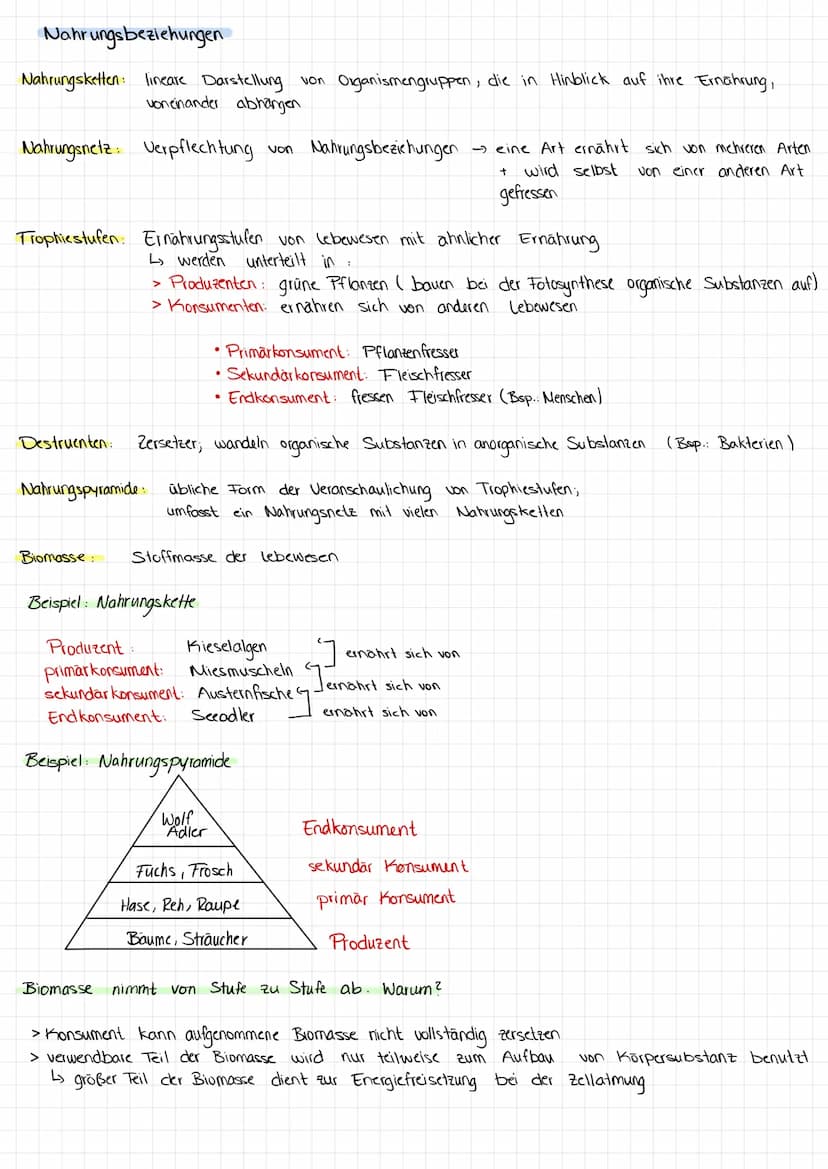 Nahrungsbeziehungen
Nahrungsketten: lineare Darstellung von Organismengruppen, die in Hinblick auf ihre Ernährung,
voneinander abhängen
Nahrungsnetz: Verpflechtung von Nahrungsbeziehungen → eine Art ernährt sich von mehreren Arten
+ wird selbst von einer anderen Art
gefressen
Trophiestufen: Ernährungsstufen von Lebewesen mit ähnlicher Ernährung
↳ werden unterteilt in:
> Produzenten: grüne Pflanzen (bauen bei der Fotosynthese organische Substanzen auf)
> Konsumenten: ernähren sich von anderen Lebewesen
• Primärkonsument: Pflanzenfresser
• Sekundärkonsument: Fleischfresser
• Endkonsument: fressen Fleischfresser (Bsp.: Menschen)
Destruenten: Zersetzer; wandeln organische Substanzen in anorganische Substanzen (Bsp.: Bakterien)
Nahrungspyramide: übliche Form der Veranschaulichung von Trophiestufen;
umfasst ein Nahrungsnetz mit vielen Nahrungsketten
Biomasse: Stoffmasse der Lebewesen
Beispiel: Nahrungskette
Produzent: Kieselalgen
ernährt sich von
primärkonsument: Miesmuscheln
ernährt sich von
sekundärkonsument: Austernfische
Endkonsument: Seeadler
ernährt sich von
Beispiel: Nahrungspyramide
Wolf
Adler
Endkonsument
Fuchs, Frosch
sekundär Konsument
Hase, Reh, Raupe
primär Konsument
Bäume, Sträucher
Produzent
Biomasse nimmt von Stufe zu Stufe ab. Warum?
> Konsument kann aufgenommene Biomasse nicht vollständig zersetzen
> verwendbare Teil der Biomasse wird nur teilweise zum Aufbau von Körpersubstanz benutzt
↳ großer Teil der Biomasse dient zur Energiefreisetzung bei der Zellatmung